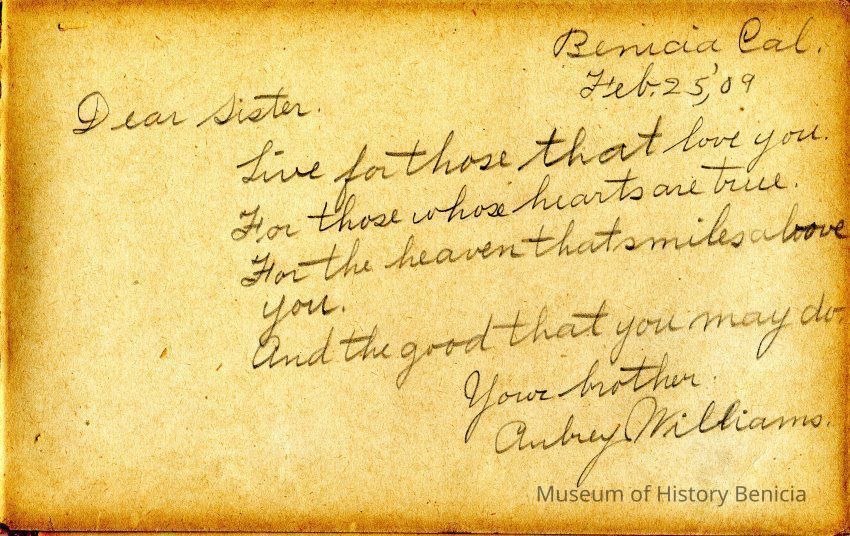 Benicia Cal.
Feb. 25, '09
Dear Sister.
Live for those that love you.
For those whose hearts are true.
For the heaven that smiles above
you.
And the good that you may do.
Your brother.
Aubrey Williams.
Museum of History Benicia